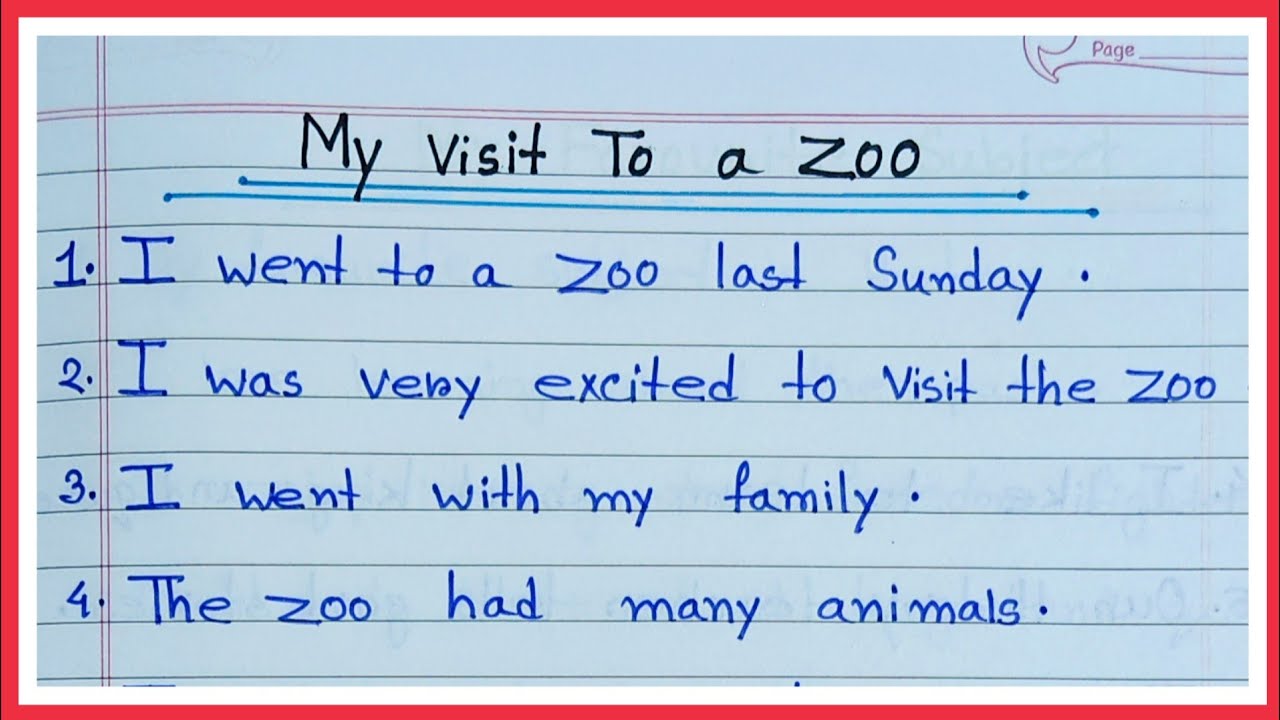 Page
My Visit To a Zoo
1. I went to a zoo last Sunday.
2. I was very excited to visit the zoo.
3. I went with my family.
4. The zoo had many animals.